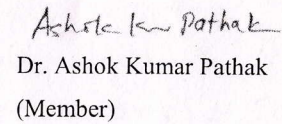 Ashok Kr Pathak
Dr. Ashok Kumar Pathak
(Member)